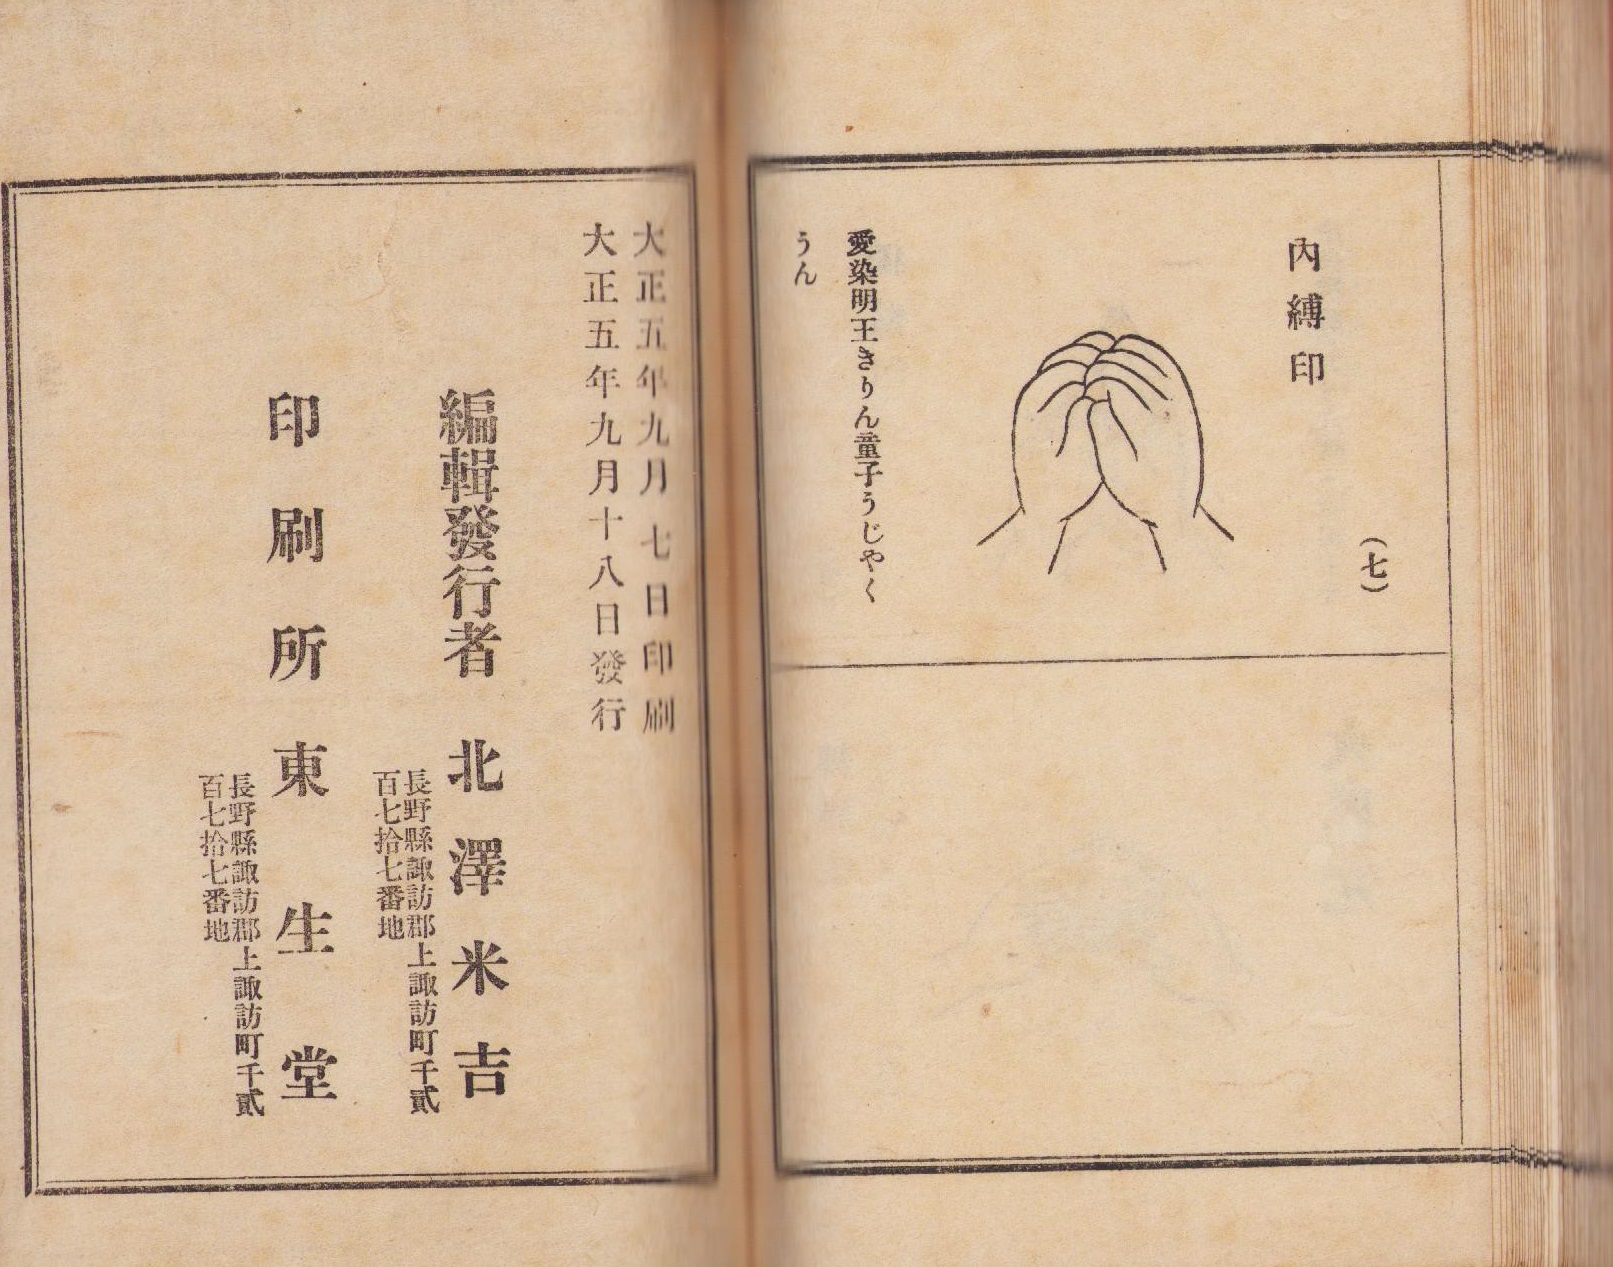 （七）
內縛印
愛染明王きりん童子うじやく
うん
大正五年九月七日印刷
大正五年九月十八日發行
編輯發行者 北澤米吉
長野縣諏訪郡上諏訪町千貳
百七拾七番地
印刷所 東生堂
長野縣諏訪郡上諏訪町千貳
百七拾七番地